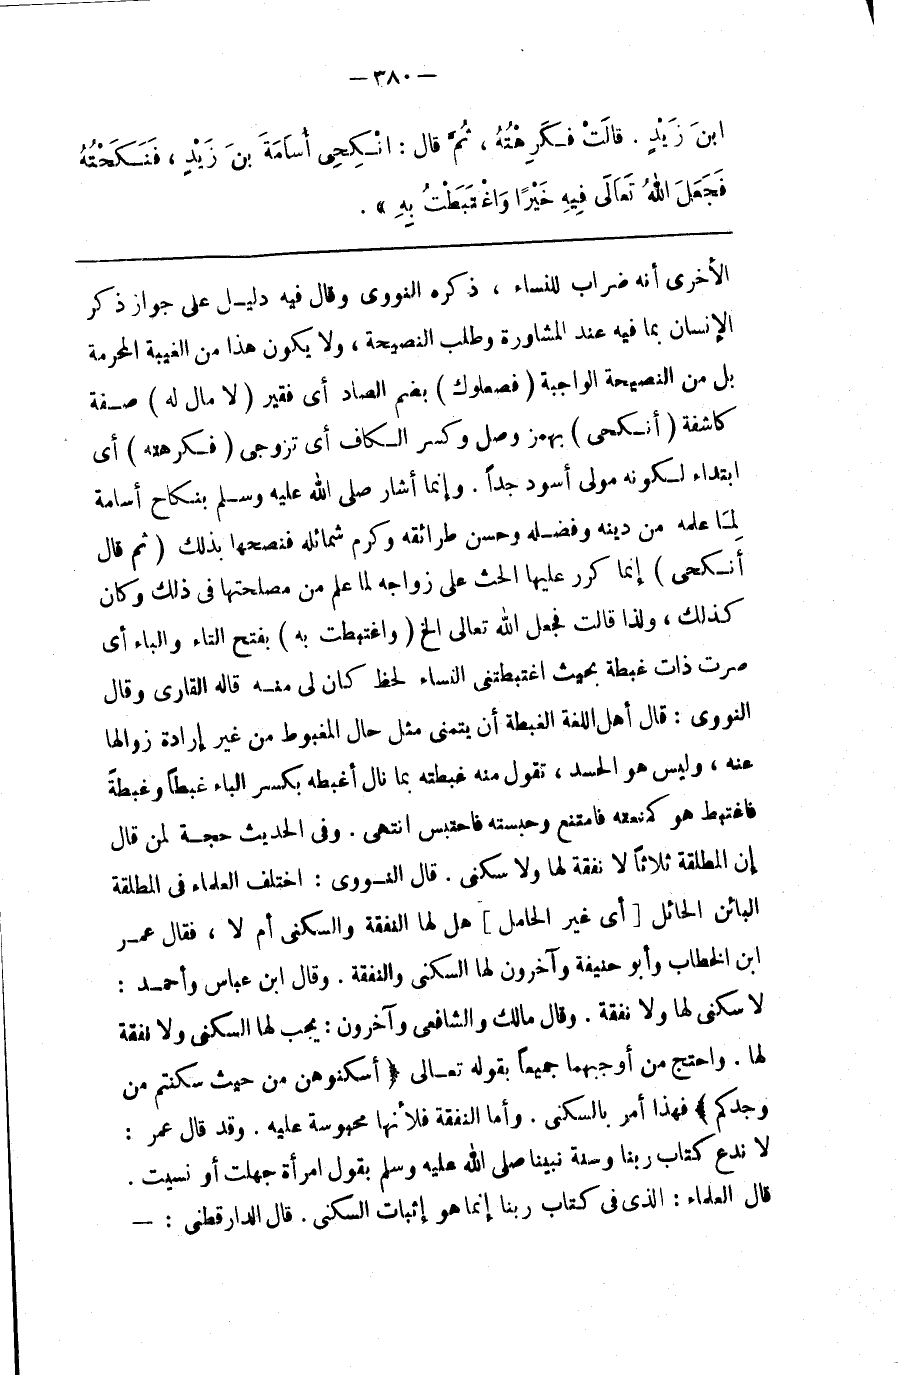 — ٣٨٠ —
ابنَ زَيْدٍ . قالَتْ فَكَرِهْتُهُ ، ثُمَّ قال : انْكِحِى أُسَامَةَ بنَ زَيْدٍ ، فَنَكَحْتُهُ
فَجَعَلَ اللهُ تَعَالَى فِيهِ خَيْرًا وَاغْتَبَطْتُ بِهِ » .
الأخرى أنه ضراب للنساء ، ذكره النووى وقال فيه دليل على جواز ذكر
الإنسان بما فيه عند المشاورة وطلب النصيحة ، ولا يكون هذا من الغيبة المحرمة
بل من النصيحة الواجبة ( فصعلوك ) بضم الصاد أى فقير ( لا مال له ) صفة
كاشفة ( أنكحى ) بهمز وصل وكسر الكاف أى تزوجى ( فكرهته ) أى
ابتداء لكونه مولى أسود جداً . وإنما أشار صلى الله عليه وسلم بنكاح أسامة
لِمَا علمه من دينه وفضله وحسن طرائقه وكرم شمائله فنصحها بذلك ( ثم قال
أنكحى ) إنما كرر عليها الحث على زواجه لما علم من مصلحتها فى ذلك وكان
كذلك ، ولذا قالت فجعل الله تعالى الخ ( واغتبطت به ) بفتح التاء والباء أى
صرت ذات غبطة بحيث اغتبطتنى النساء لحظ كان لى منه قاله القارى وقال
النووى : قال أهل اللغة الغبطة أن يتمنى مثل حال المغبوط من غير إرادة زوالها
عنه ، وليس هو الحسد ، تقول منه غبطته بما نال أغبطه بكسر الباء غبطاً وغبطةً
فاغتبط هو كمنعته فامتنع وحبسته فاحتبس انتهى . وفى الحديث حجة لمن قال
إن المطلقة ثلاثاً لا نفقة لها ولا سكنى . قال النووى : اختلف العلماء فى المطلقة
البائن الحائل [ أى غير الحامل ] هل لها النفقة والسكنى أم لا ، فقال عمر
ابن الخطاب وأبو حنيفة وآخرون لها السكنى والنفقة . وقال ابن عباس وأحمد :
لا سكنى لها ولا نفقة . وقال مالك والشافعى وآخرون : يجب لها السكنى ولا نفقة
لها . واحتج من أوجبهما جميعاً بقوله تعالى ﴿ أسكنوهن من حيث سكنتم من
وجدكم ﴾ فهذا أمر بالسكنى . وأما النفقة فلأنها محبوسة عليه . وقد قال عمر :
لا ندع كتاب ربنا وسنة نبينا صلى الله عليه وسلم بقول امرأة جهلت أو نسيت .
قال العلماء : الذى فى كتاب ربنا إنما هو إثبات السكنى . قال الدارقطنى : —